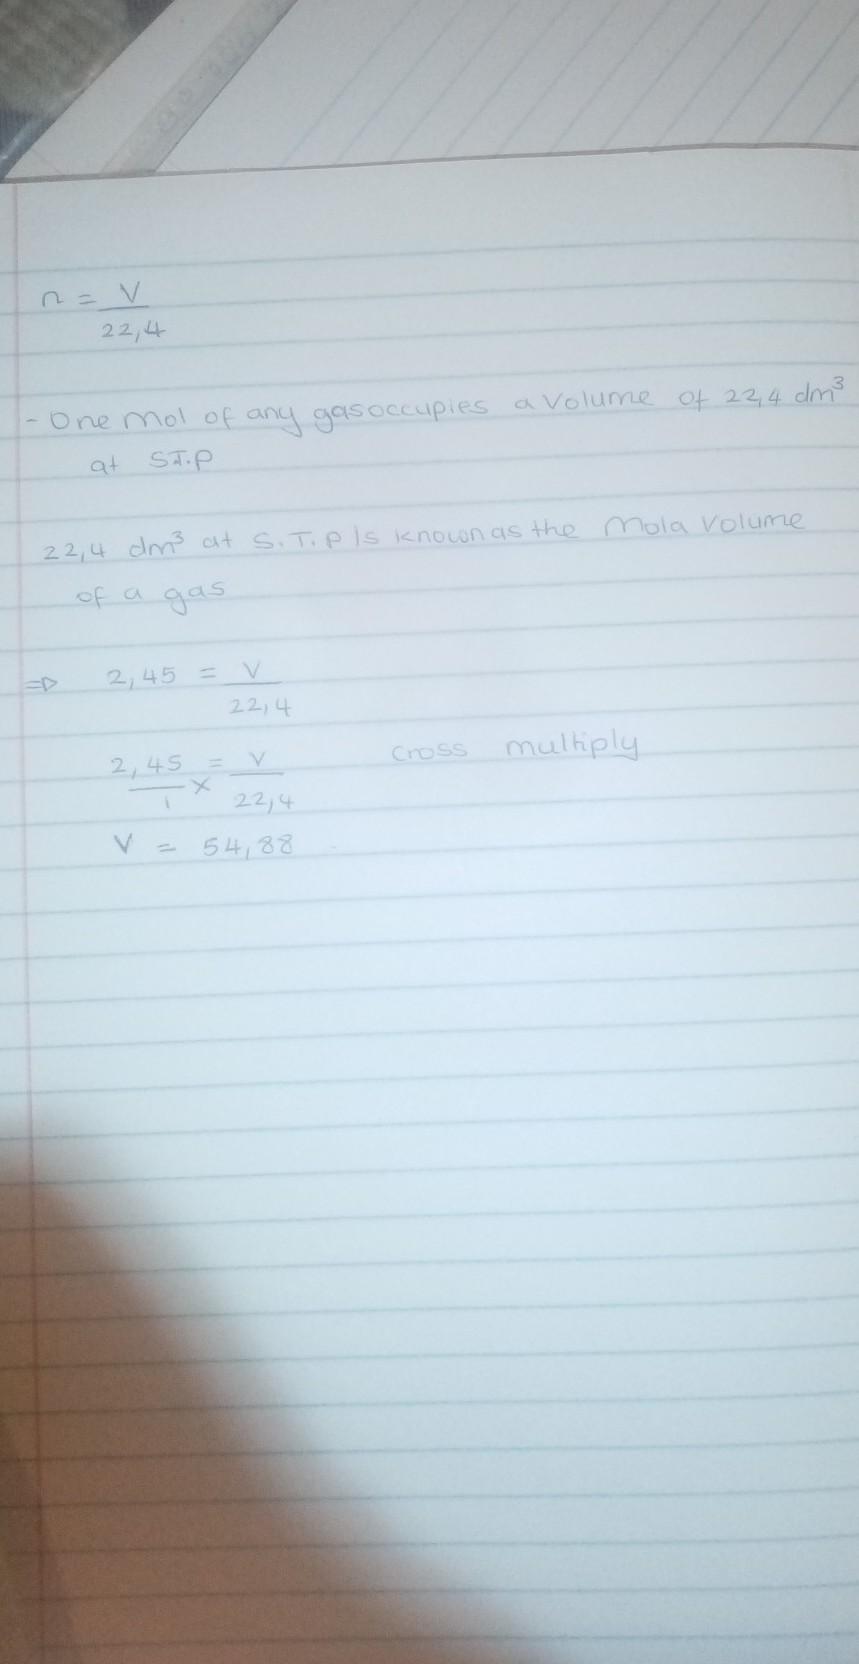 n = V
22,4
- One mol of any gas occupies a volume of 22,4 dm³
at S.T.P
22,4 dm³ at S.T.P is known as the mola volume
of a gas
⇒ 2,45 = V
22,4
2,45 = V cross multiply
1 × 22,4
V = 54,88